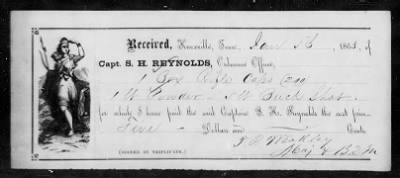 Received, Knoxville, Tenn., Jan 16 1863, of
Capt. S. H. REYNOLDS, Ordnance Officer,
1 Box Rifle Caps
1 lb Powder - 4 lb Buck Shot -
for which I have paid the said Captain S. H. Reynolds the cost price
Five - Dollars and Cents.
(SIGNED IN TRIPLICATE.)
Maj &